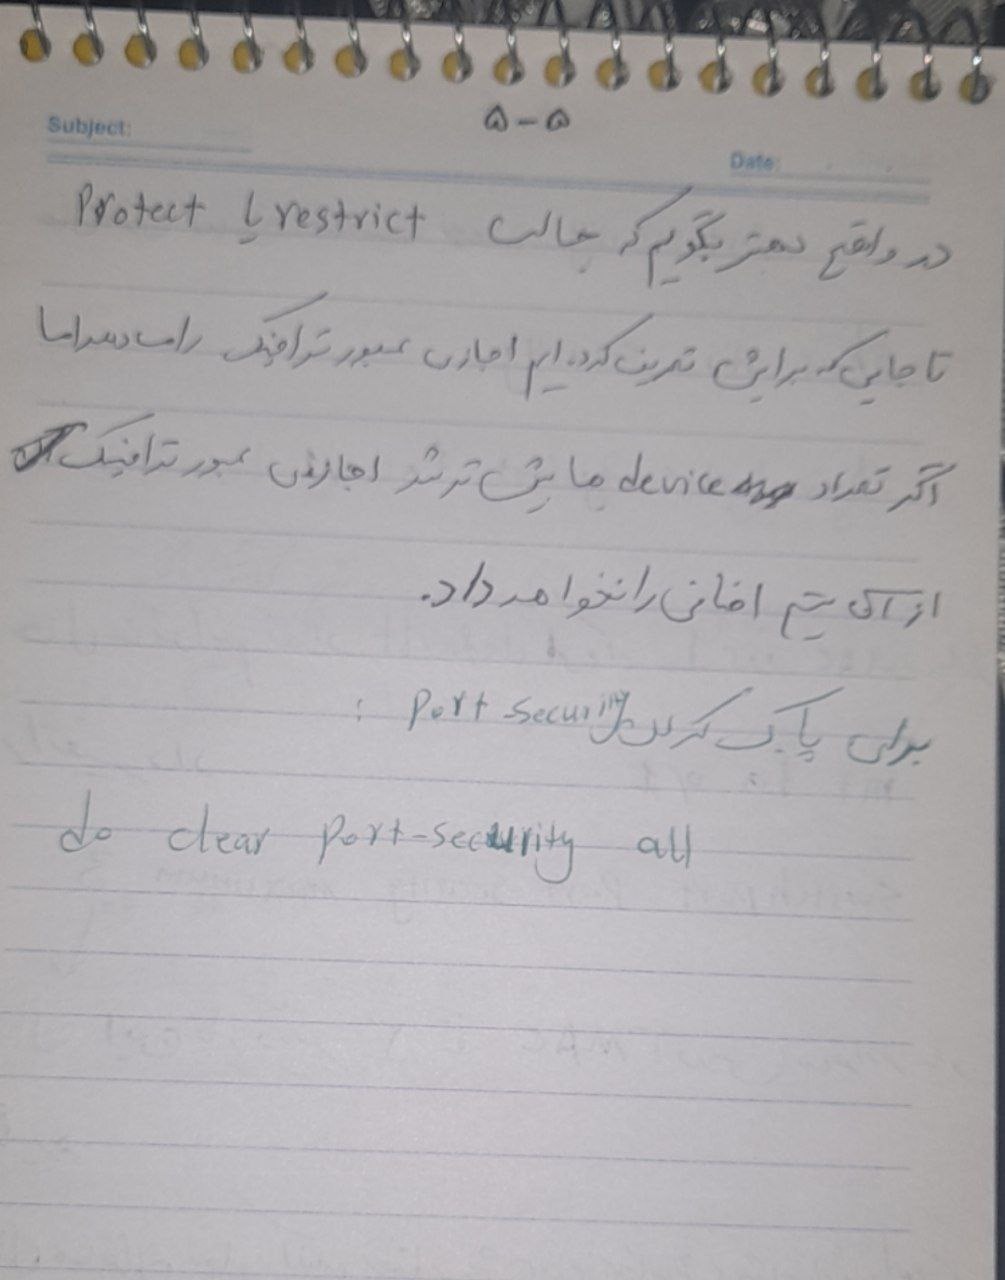 ۵-۵
Subject:
Date:
در واقع بهتر بگویم که حالت restrict یا Protect
تا جایی که برایش تعریف کرده ایم اجازه عبور ترافیک را میدهد اما
اگر تعداد device ها بیش تر شد اجازه ی عبور ترافیک
از آی پی اضافی را نخواهد داد.
برای پاک کردن Port security :
do clear port-security all